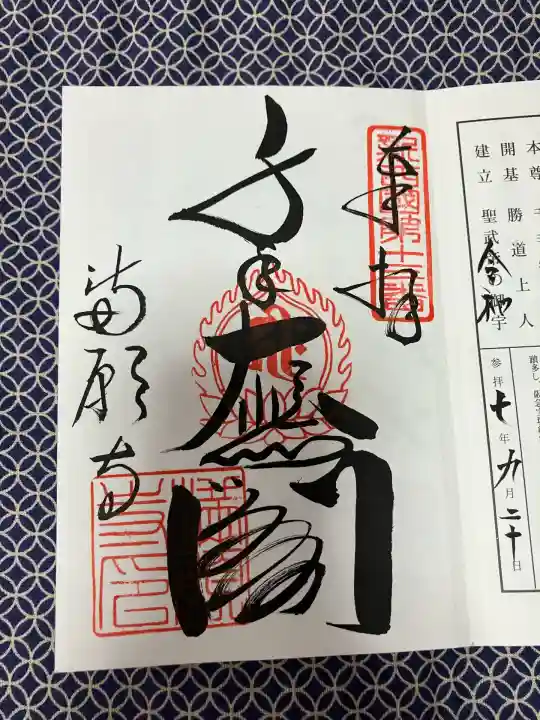 本尊 千手
開基 勝道上人
建立 聖武の御宇
令和
参拝 七年九月二十日
奉拝
千手大悲閣
満願寺